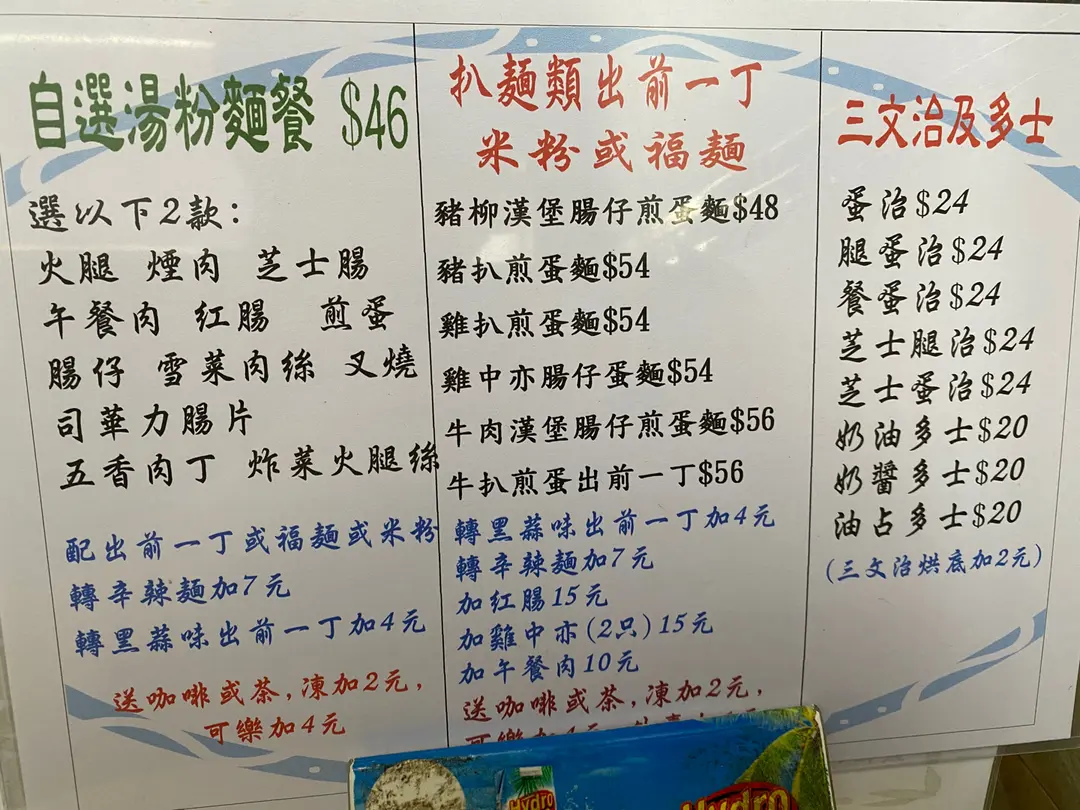 自選湯粉麵餐 $46
選以下2款：
火腿 煙肉 芝士腸
午餐肉 紅腸 煎蛋
腸仔 雪菜肉絲 叉燒
司華力腸片
五香肉丁 炸菜火腿絲
配出前一丁或福麵或米粉
轉辛辣麵加7元
轉黑蒜味出前一丁加4元
送咖啡或茶,凍加2元,
可樂加4元
扒麵類出前一丁
米粉或福麵
豬柳漢堡腸仔煎蛋麵$48
豬扒煎蛋麵$54
雞扒煎蛋麵$54
雞中亦腸仔蛋麵$54
牛肉漢堡腸仔煎蛋麵$56
牛扒煎蛋出前一丁$56
轉黑蒜味出前一丁加4元
轉辛辣麵加7元
加紅腸15元
加雞中亦(2只)15元
加午餐肉10元
送咖啡或茶,凍加2元,
可樂加4元
三文治及多士
蛋治$24
腿蛋治$24
餐蛋治$24
芝士腿治$24
芝士蛋治$24
奶油多士$20
奶醬多士$20
油占多士$20
(三文治烘底加2元)
Hydro
Hydro